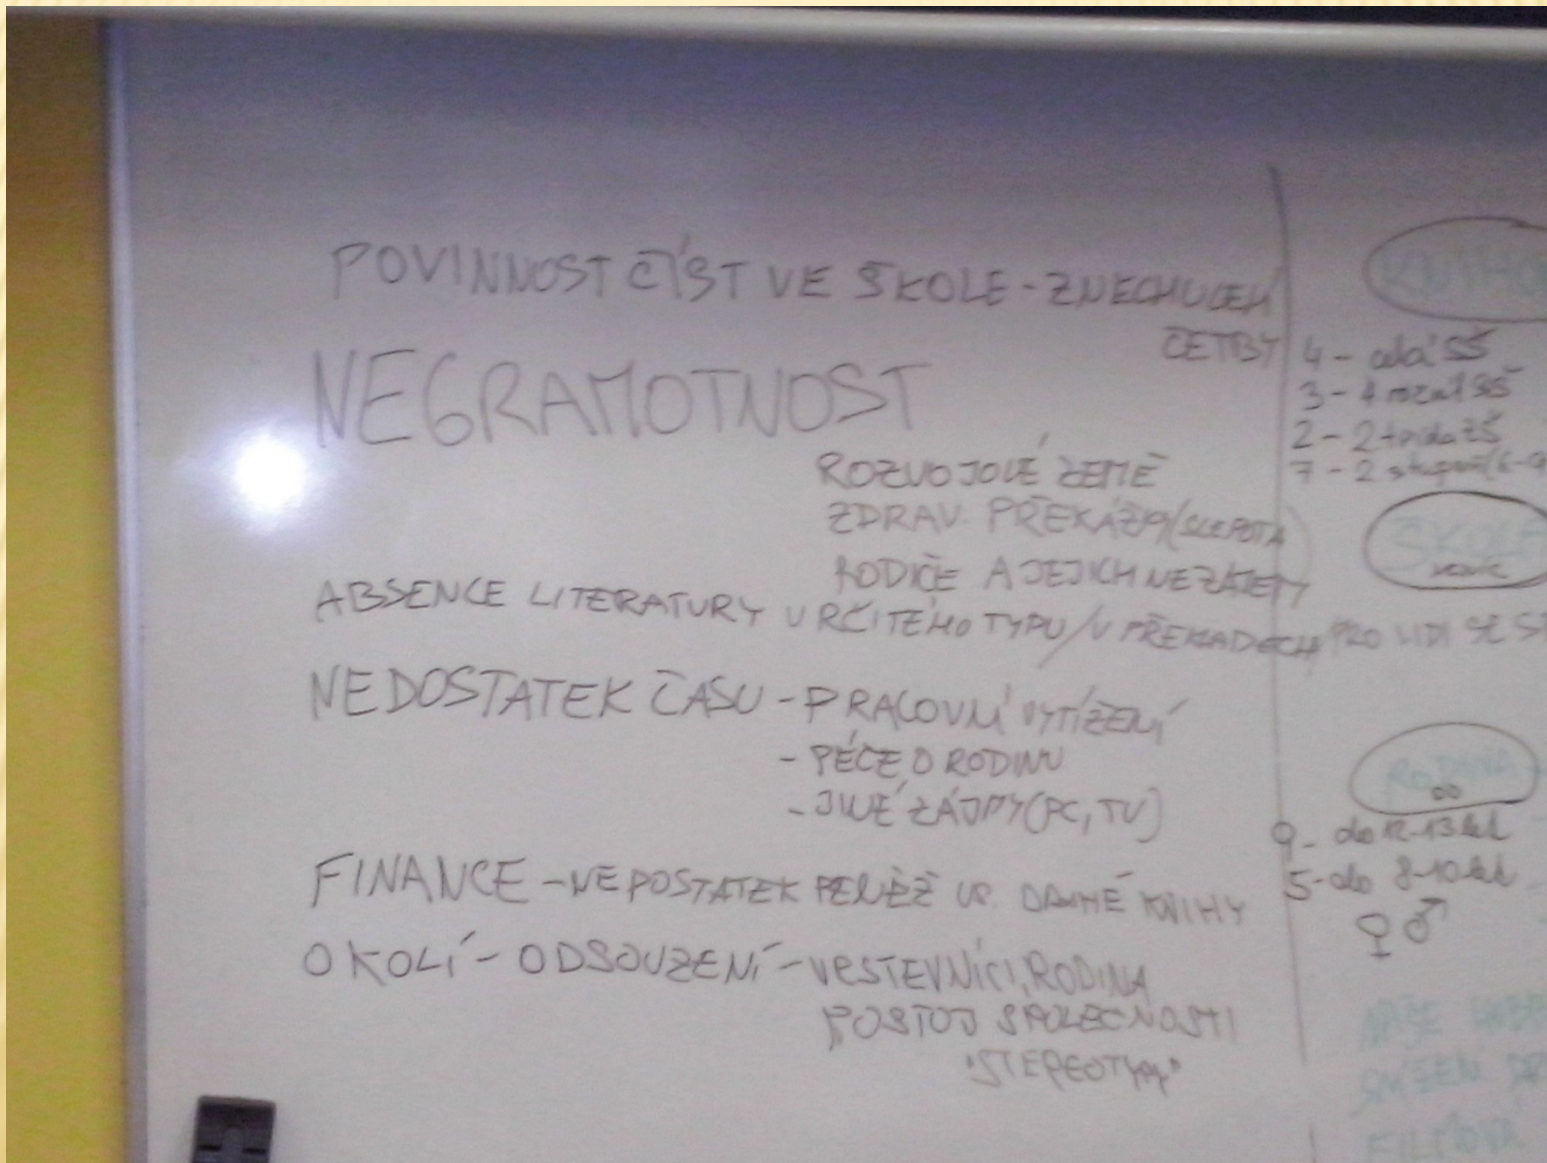 POVINNOST ČÍST VE ŠKOLE - ZNECHUCEN
ČETBY
NEGRAMOTNOST
ROZVOJOVÉ ZEMĚ
ZDRAV. PŘEKÁŽKY (SLEPOTA)
RODIČE A JEJICH NEZÁJEM
ABSENCE LITERATURY URČITÉHO TYPU / V PŘEKLADECH PRO LIDI SE
NEDOSTATEK ČASU - PRACOVNÍ VYTÍŽENÍ
- PÉČE O RODINU
- JINÉ ZÁJMY (PC, TV)
FINANCE - NEDOSTATEK PENĚZ DANÉ KNIHY
OKOLÍ - ODSOUZENÍ - VRSTEVNÍCI, RODINA
POSTOJ SPOLEČNOSTI
"STEREOTYPY"
4 - celá SŠ
3 - 1 SŠ
2 - 2 třída ZŠ
7 - 2 stupeň (6-9
ŠKOLE
RODINA
9 - do 12-13 let
5 - do 8-10 let
♀ ♂
FILMOVÁ